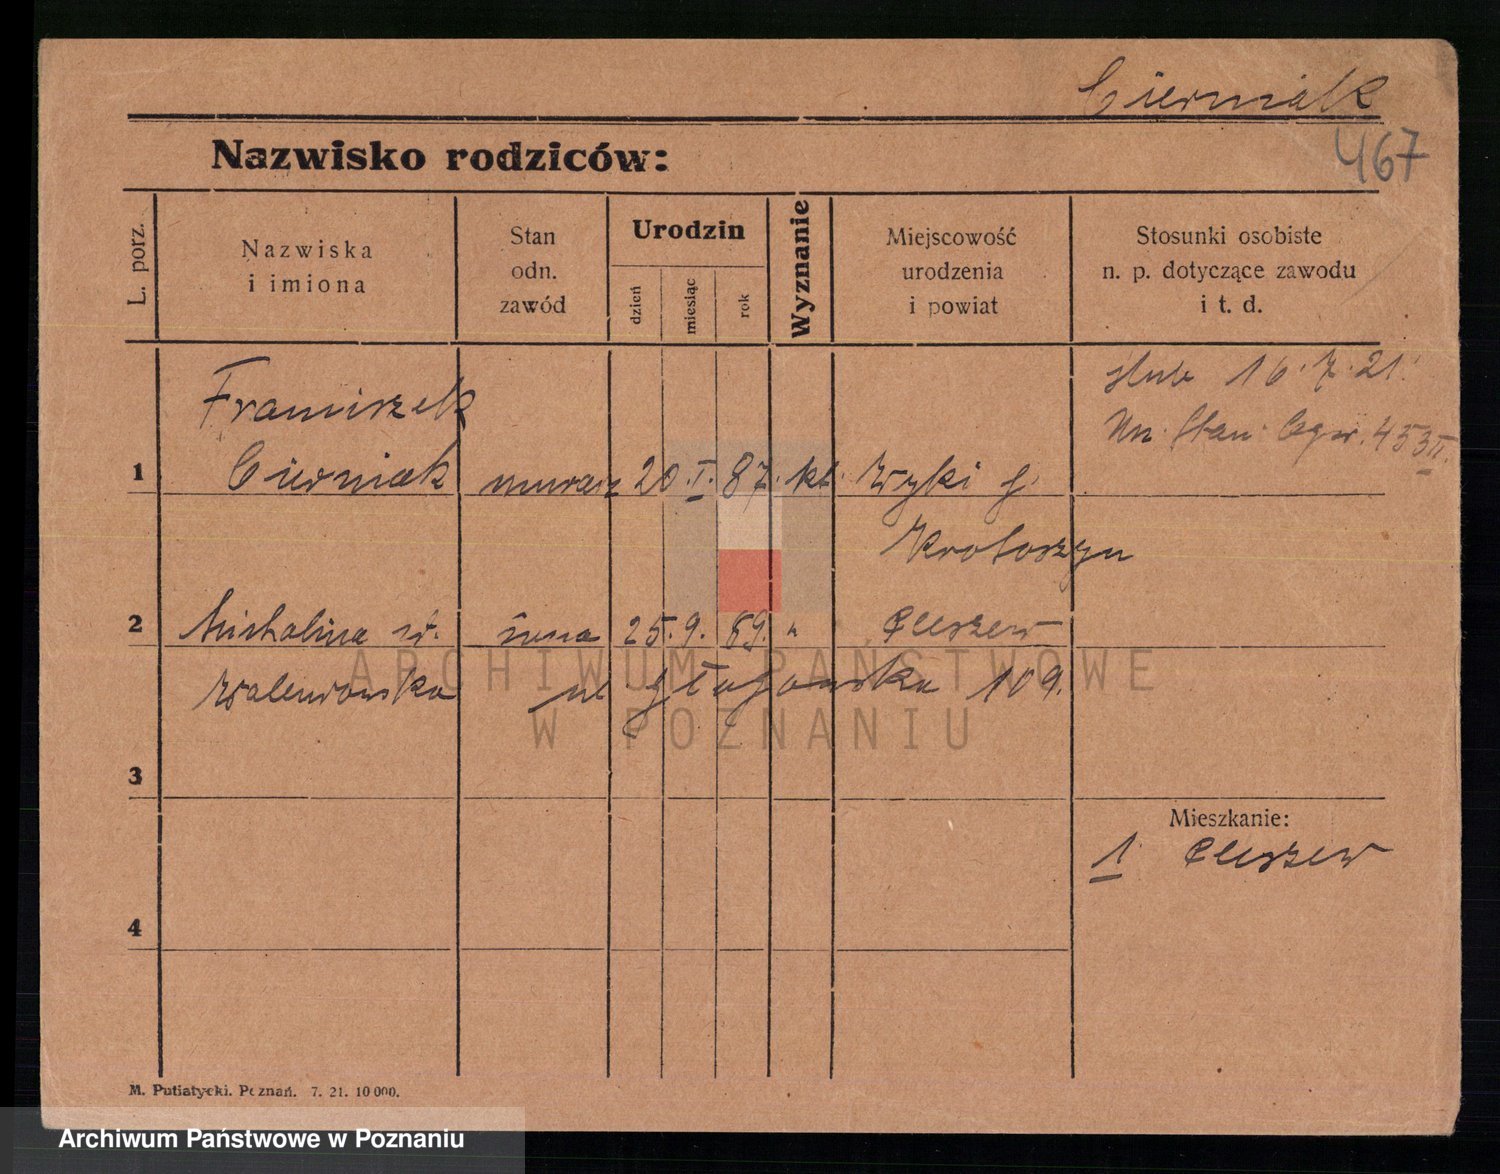 Cierniak
467
Nazwisko rodziców:
L. porz.
Nazwiska
i imiona
Stan
odn.
zawód
Urodzin
dzień
miesiąc
rok
Wyznanie
Miejscowość
urodzenia
i powiat
Stosunki osobiste
n. p. dotyczące zawodu
i t. d.
ślub 16.7.21.
Stan 453 II.
Franciszek
1 Cierniak murarz 20. I. 87. kt.
Krotoszyn
2 Michalina żona 25. 9. 89. " Pleszew
Walewowska ul Głogowska 109.
3
Mieszkanie:
1 Pleszew
4
M. Putiatycki. Poznań. 7. 21. 10 000.
ARCHIWUM PAŃSTWOWE
W POZNANIU
Archiwum Państwowe w Poznaniu